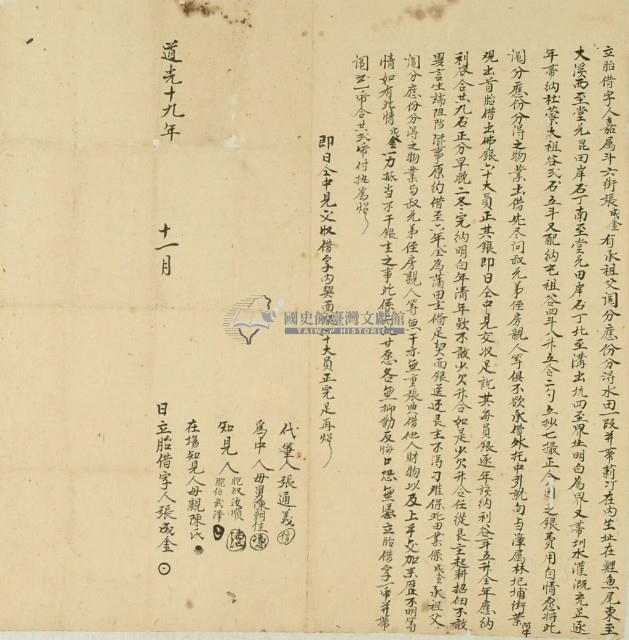 立胎借字人嘉属斗六街張成金有承祖父鬮分應份分得水田一段并帶莿竹在內坐址在鯉魚尾東至
大溪西至堂兄昆田岸石丁南至堂兄田岸石丁北至溝出坑四至界址明白為界又帶圳水灌溉充足逐
年帶納杜蒙大租谷弍石五斗又配納屯祖谷四斗八升五合二勺五抄七撮正今因乏銀費用自情愿將此
鬮分應份分得之物業出借先尽问叔兄弟侄房親人等俱不欲承借外托中引就向与漳属林圯埔街葉
現出首胎借出佛銀六十大員正其銀即日仝中見交收足訖其每員銀逐年該納利谷年五升全年應納
利谷合共九石正分早晚二冬完納明白年清年款不敢少欠升合如是少欠升合任從艮主起耕招佃不敢
異言生端阻隔滋事原約借至六年全為滿田主俻足契面銀送还艮主不得刁难保此田業保成金承祖父
鬮分應份分得之物業与叔兄弟侄房親人等無干亦無重張典借他人財物以及上手交加来歷不明等
情如有此情成金一力抵当不干銀主之事此係二比甘愿各無抑勒反悔口恐無憑立胎借字一帋并帶
鬮書一帋合共弍帋付执為炤
即日仝中見交收借字內契面銀六十大員正完足再炤
代筆人張通義
為中人母舅陳朝佳
知見人
胞叔汝順
胞伯武澤
在場知見人母親陳氏
道光十九年 十一月 日立胎借字人張成金
國史館臺灣文獻館
TAIWAN HISTORICA